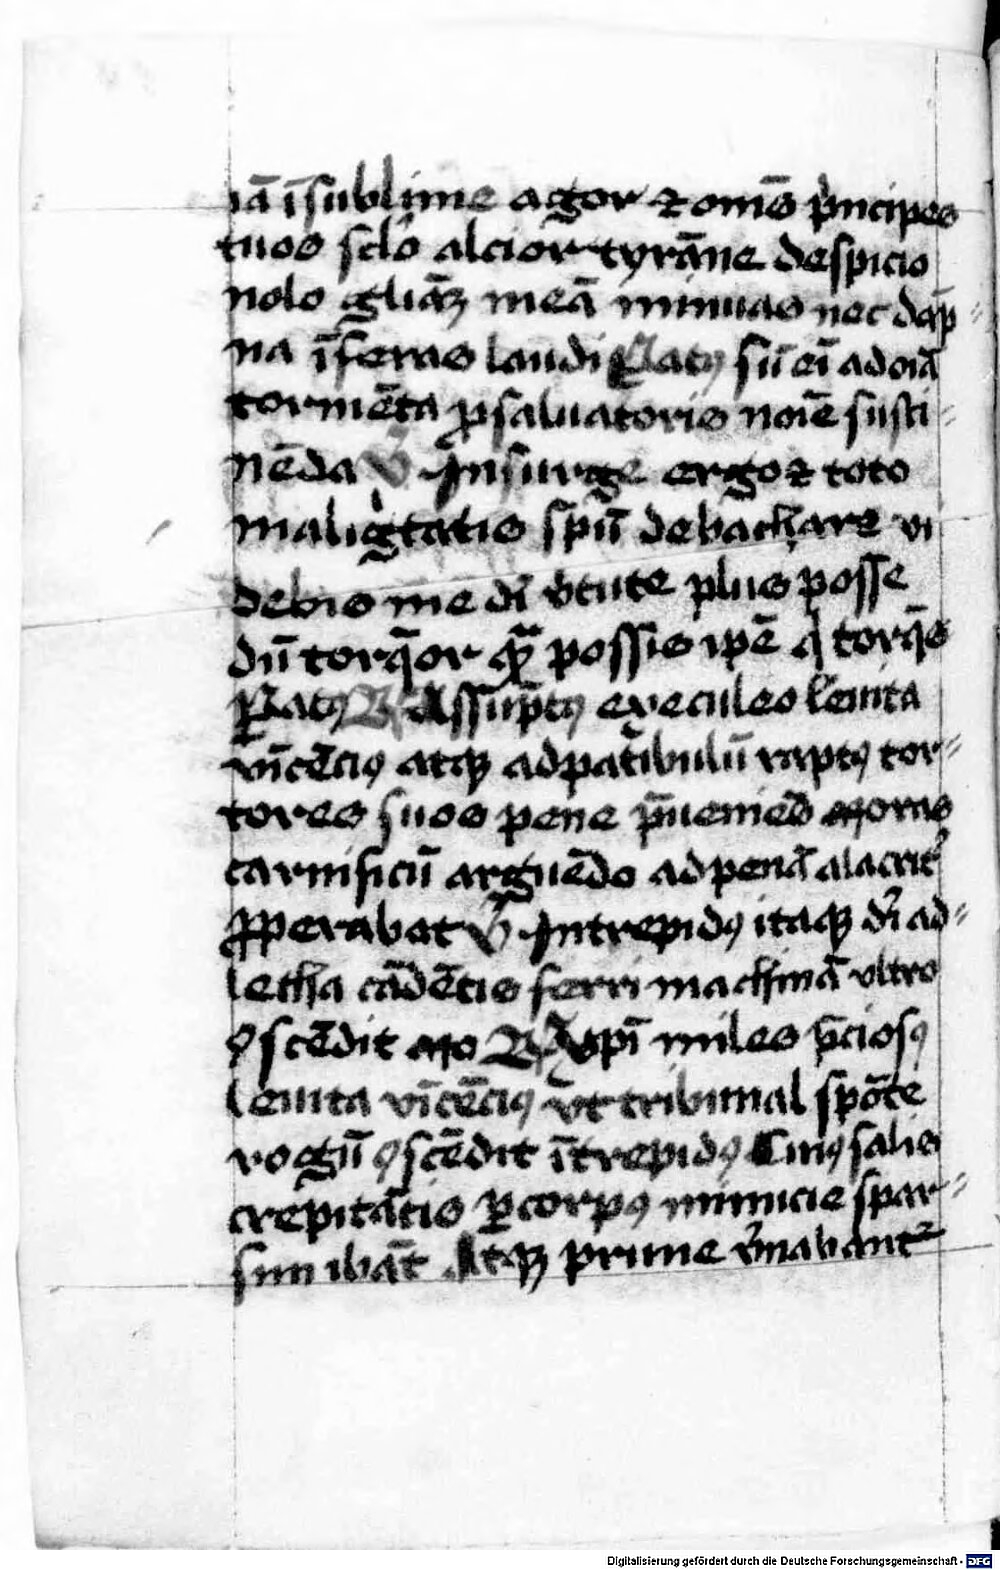 iā ī sublime agor ⁊ om̄s p̾ncipes
tuos sclo alcior tyrāne despicio
nolo gliaȝ meā minuas nec dāp-
na īferas laudi P̄atꝰ sū eī ad oīa
tormēta ꝓ saluatoris noīe susti-
nēda V̾ Insurge ergo ⁊ toto
maligtatis spū debachare vi
debis me dī v̾tute plus posse
dū torq̄or qȝ̄ possis ip̄e q̇ torq̄s
P̄atꝰ R̸ Assūptꝰ ex eculeo leuita
vīcēciꝰ atqȝ ad patibulū raptꝰ tor-
tores suos pene p̄ueniēs moras
carnificū arguēdo ad penā alacrit̾
ꝓperabat V̾ Intrepidꝰ itaqȝ dī ad-
letha cādētis ferri machinā vltro
ꝯscēdit mo R̸ Xpī miles p̄ciosꝰ
leuita vīcēciꝰ vt tribunal spōte
rogū ꝯscēdit ītrepidꝰ Cuiꝰ salis
crepitātis ꝑ corpꝰ minucie spar-
sim ibāt Atqȝ prune v̾nabantᷣ
Digitalisierung gefördert durch die Deutsche Forschungsgemeinschaft - DFG